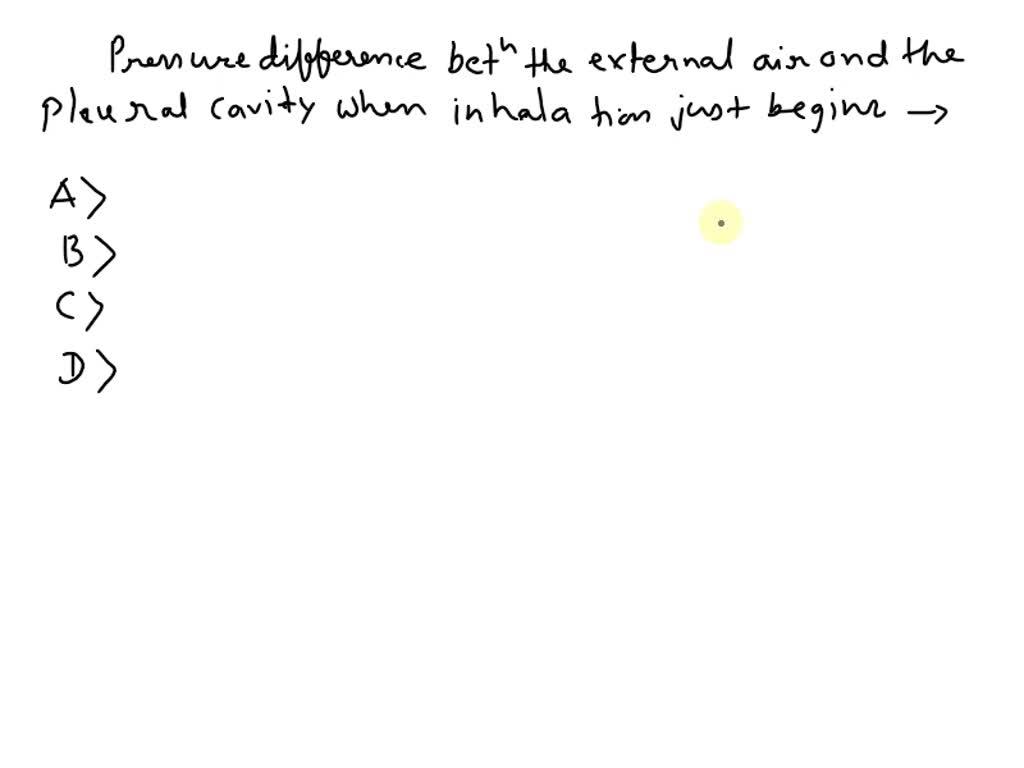 Pressure difference betⁿ the external air and the
pleural cavity when inhalation just begins →
A>
B>
C>
D>